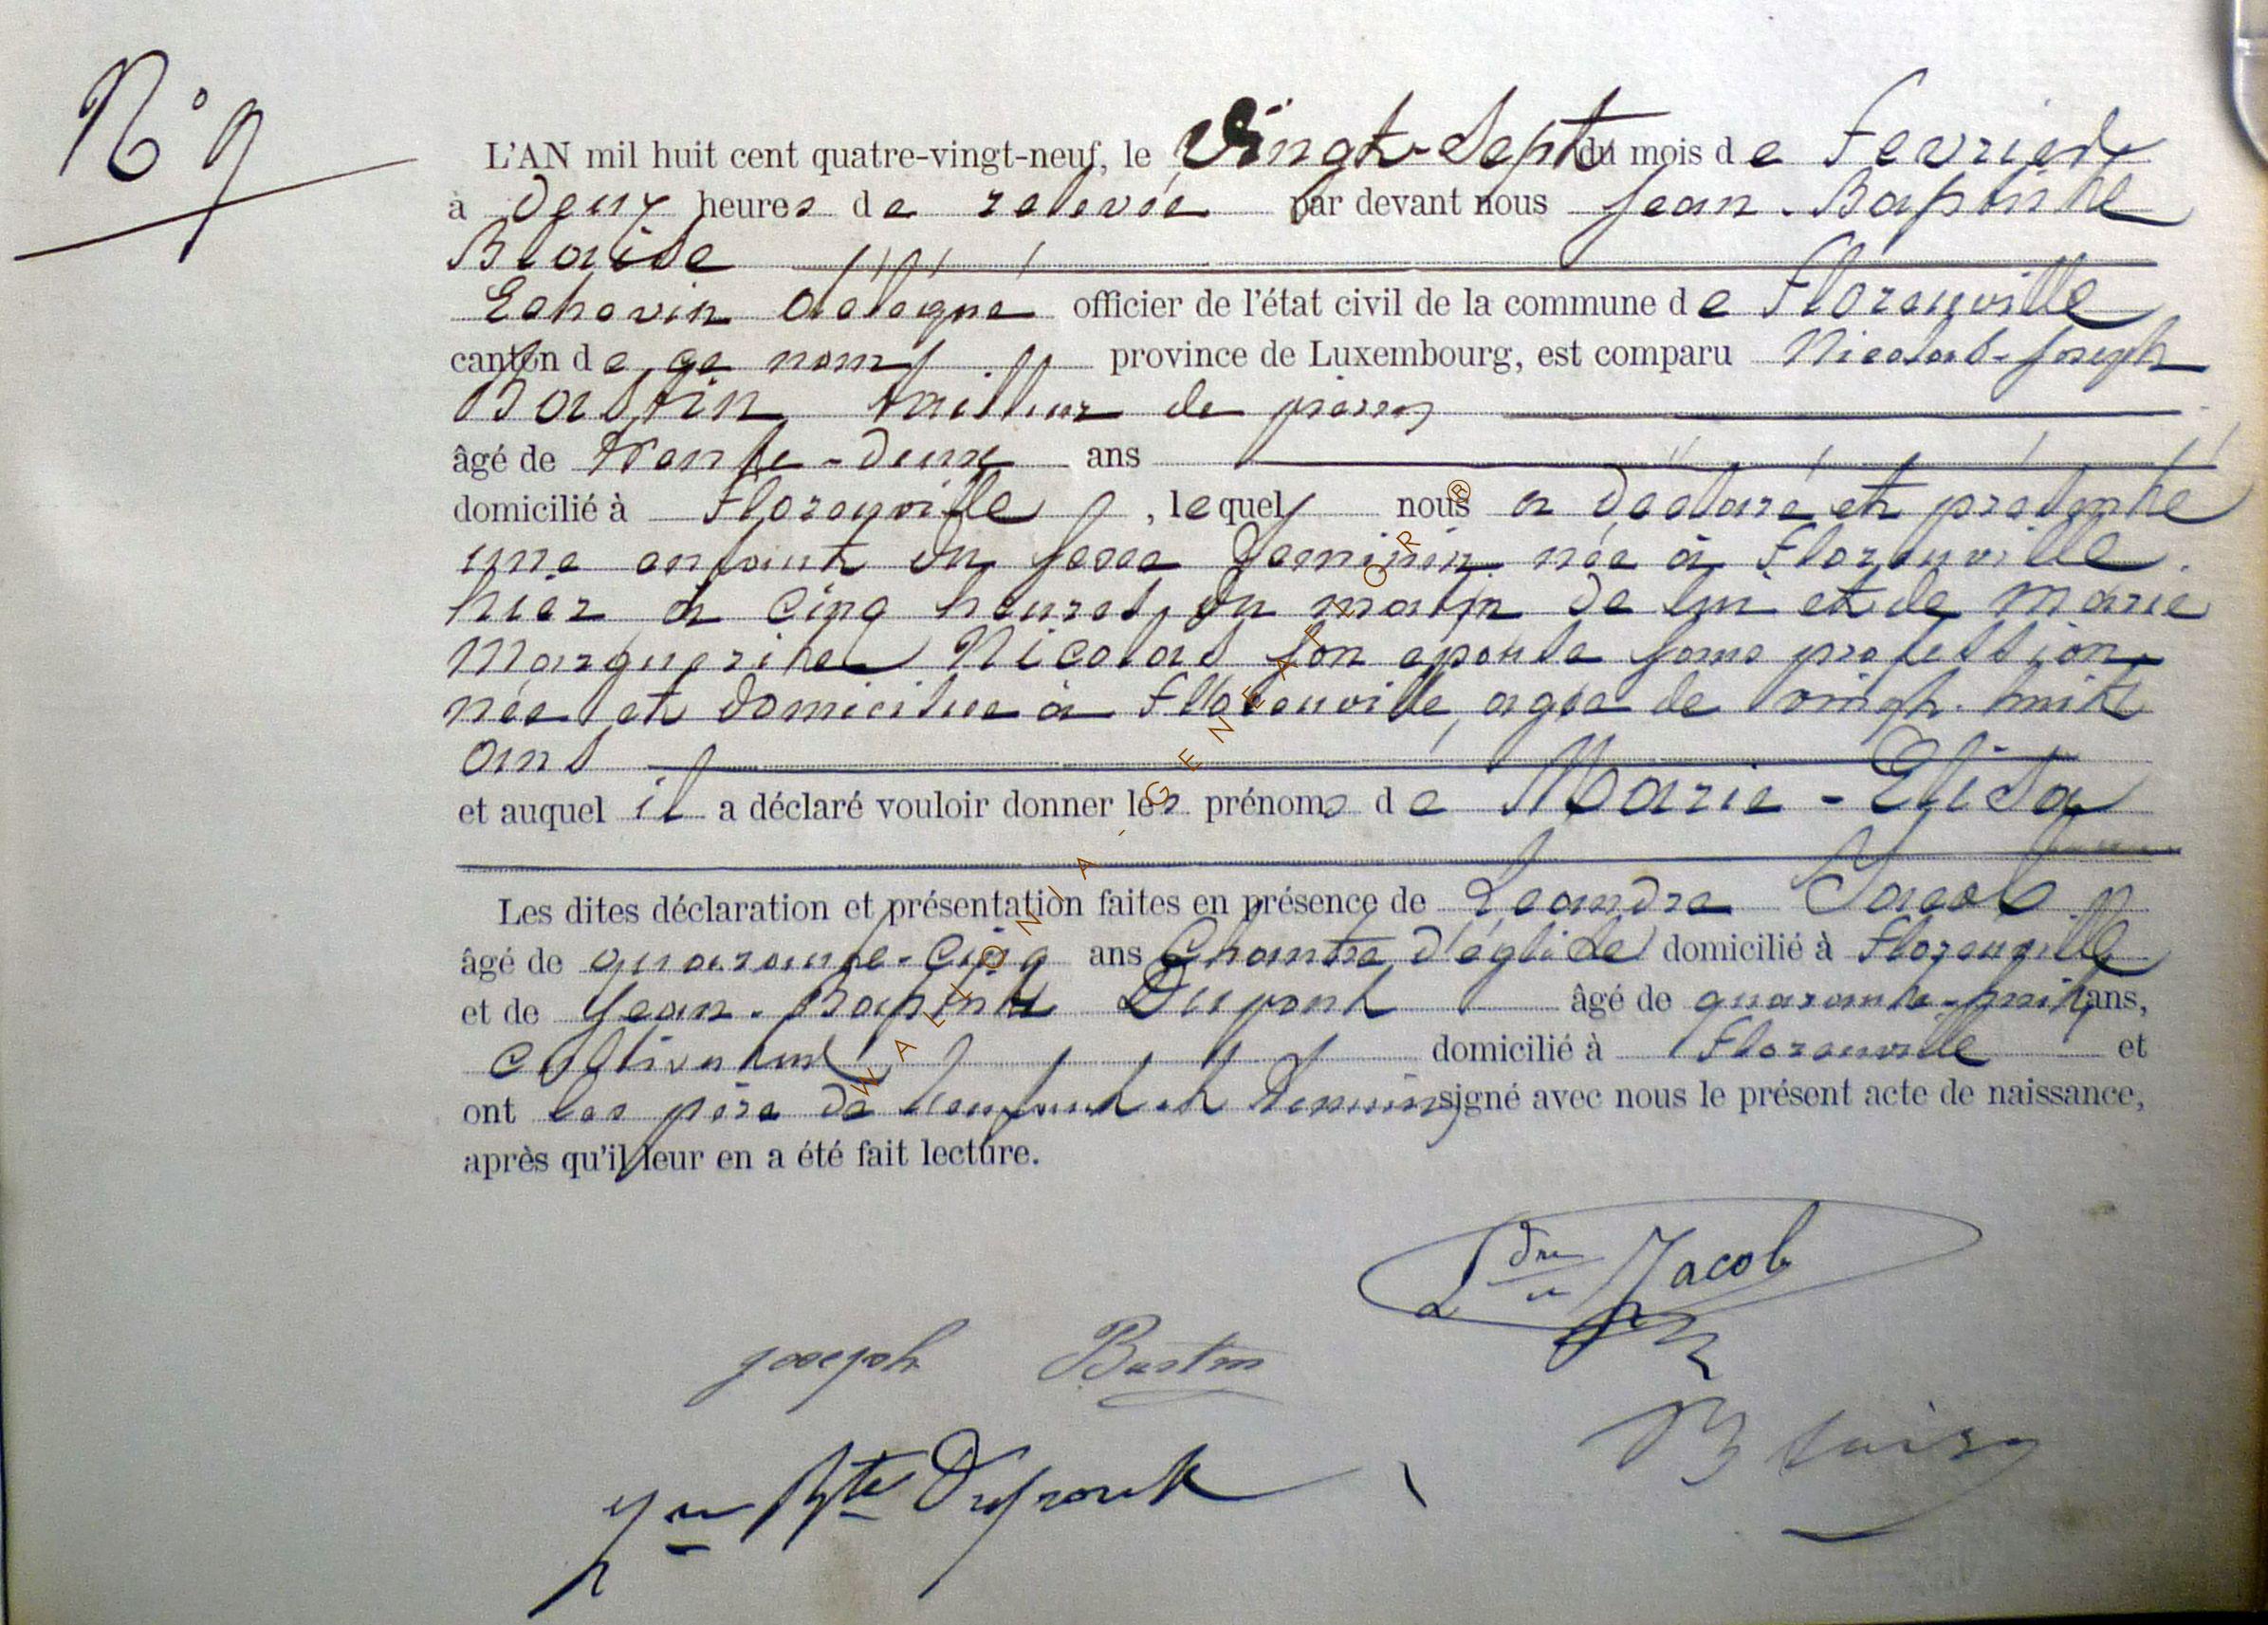 N° 9
L'AN mil huit cent quatre-vingt-neuf, le Vingt-Sept du mois de Fevrier
à Deux heures de relevée par devant nous Jean-Baptiste
Blaise
Echevin délégué officier de l'état civil de la commune de Florenville
canton de ce nom province de Luxembourg, est comparu Nicolas-Joseph
Bastin tailleur de pierres
âgé de Trente-Deux ans
domicilié à Florenville, lequel nous a déclaré et présenté
une enfant du sexe féminin née à Florenville
hier à cinq heures du matin de lui et de Marie
Marguerite Nicolas son épouse sans profession
née et domiciliée à Florenville, agée de vingt-huit
ans
et auquel il a déclaré vouloir donner les prénoms de Marie-Elisa
Les dites déclaration et présentation faites en présence de Leandre Jacob
âgé de quarante-cinq ans Chantre d'église domicilié à Florenville
et de Jean-Baptiste Dupont âgé de quarante-huit ans,
cultivateur domicilié à Florenville et
ont les père de l'enfant et témoins signé avec nous le présent acte de naissance,
après qu'il leur en a été fait lecture.
Ldre Jacob
Joseph Bastin
Blaise
Jn Bte Dupont
WALLONIA - GENEAFLOR ®